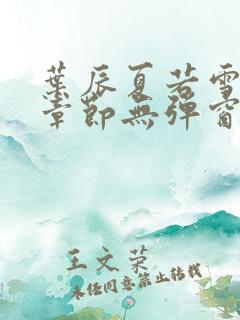 葉辰夏若雪
章節無彈窗
王文榮
未經同意禁止轉載